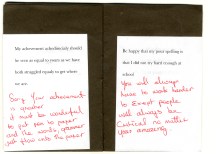 My achievement scholastically should
be seen as equal to yours as we have
both struggled equally to get where
we are.
Sorry Your achievement
is greater
it must be wonderful
to put pen to paper
and the words, grammar
just flow onto the paper
Be happy that my poor spelling is
that I did not try hard enough at
school
You will always
have to work harder
to
people
will always be
Critical no matter
your amazing